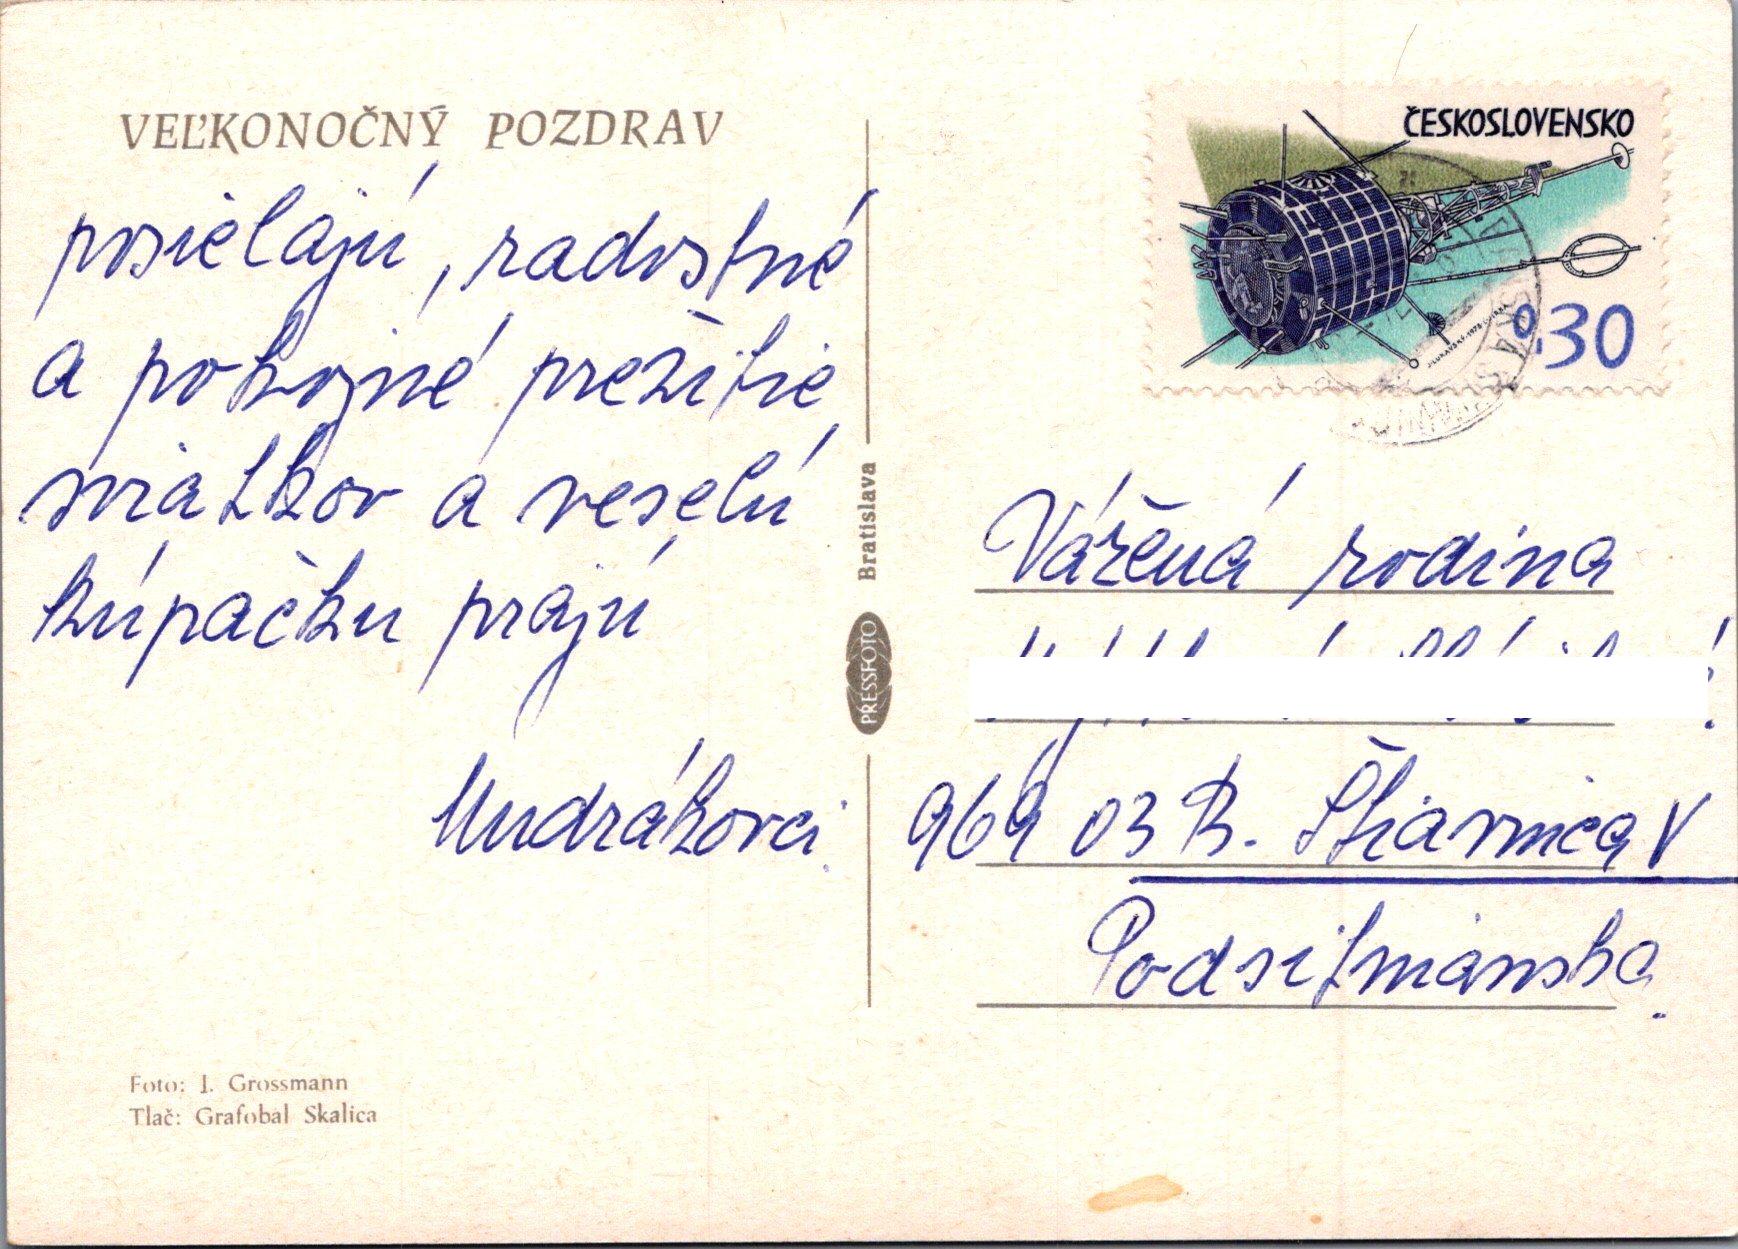 VEĽKONOČNÝ POZDRAV
posielajú, radostné
a pokojné prežitie
sviatkov a veselú
kúpačku prajú
Mudrákovci.
Foto: J. Grossmann
Tlač: Grafobal Skalica
Bratislava
PRESSFOTO
ČESKOSLOVENSKO
0.30
Vážená rodina
969 03 B. Štiavnica V
Podsitnianska.